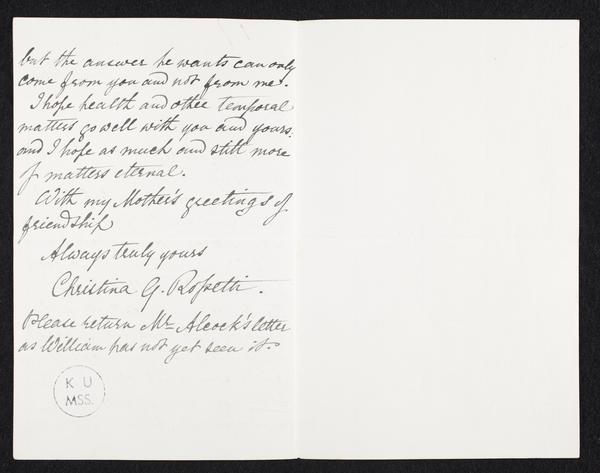 but the answer he wants can only
come from you and not from me.
I hope health and other temporal
matters go well with you and yours:
and I hope as much and still more
of matters eternal.
With my Mother's greetings of
friendship
Always truly yours
Christina G. Rossetti.
Please return Mr. Alcock's letter
as William has not yet seen it.
K U
MSS.